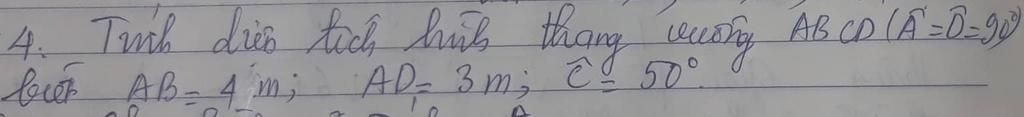 4. Tính diện tích hình thang vuông ABCD (Â = D̂ = 90°)
biết AB = 4 m; AD = 3 m; Ĉ = 50°.